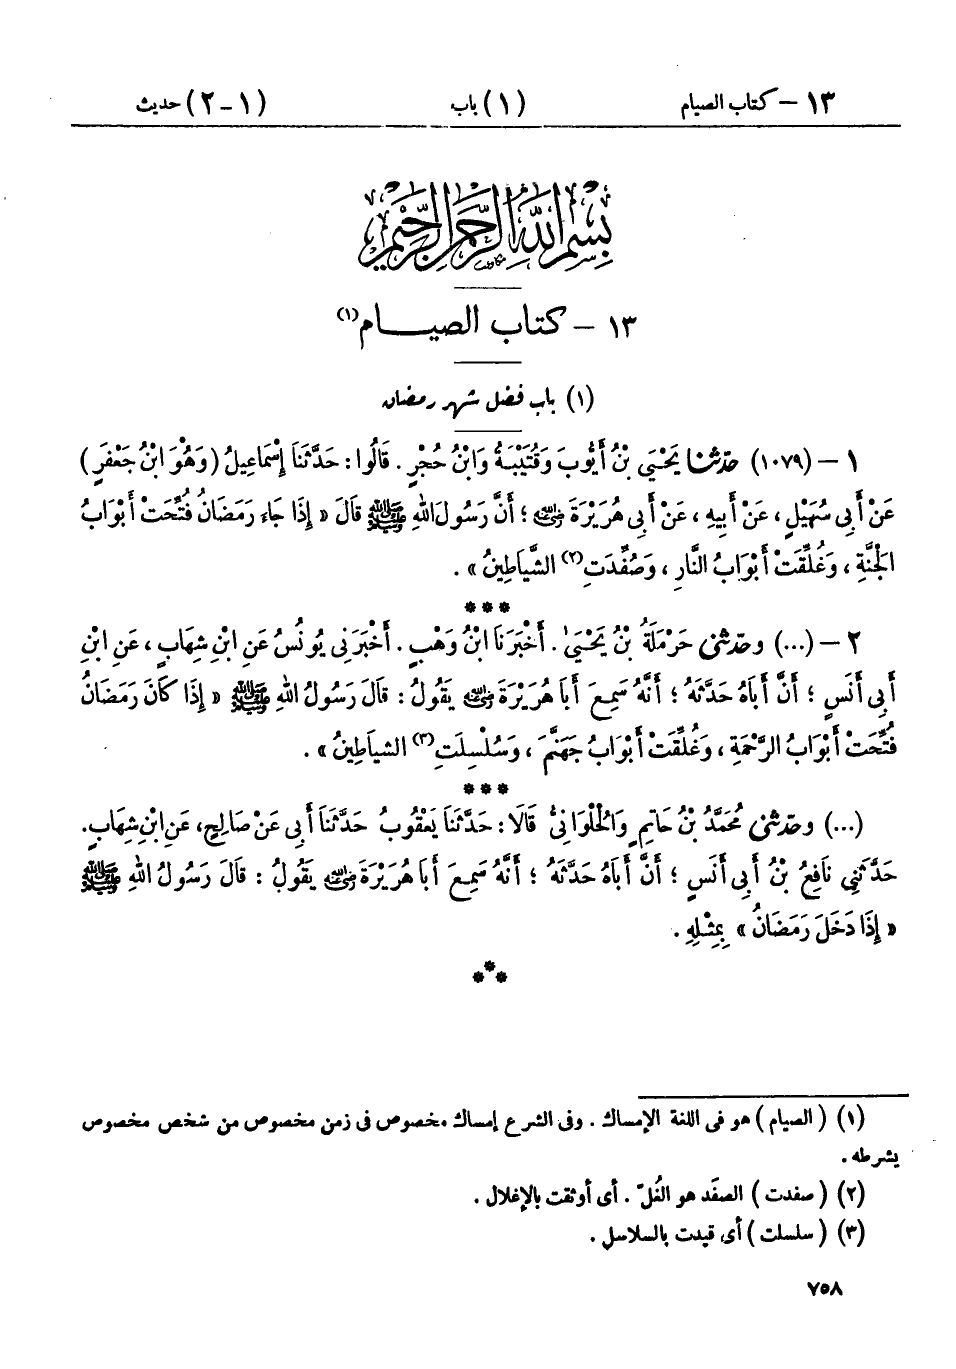 ١٣ – كتاب الصيام (١) باب (١ – ٢) حديث
بِسْمِ اللَّهِ الرَّحْمَنِ الرَّحِيمِ
١٣ – كتاب الصيـــام(١)
(١) باب فضل شهر رمضان
١ – (١٠٧٩) حدّثنا يَحْيَى بْنُ أَيُّوبَ وَقُتَيْبَةُ وَابْنُ حُجْرٍ . قَالُوا : حَدَّثَنَا إِسْمَاعِيلُ (وَهُوَ ابْنُ جَعْفَرٍ)
عَنْ أَبِي سُهَيْلٍ ، عَنْ أَبِيهِ ، عَنْ أَبِي هُرَيْرَةَ رضي الله عنه ؛ أَنَّ رَسُولَ اللهِ ﷺ قَالَ « إِذَا جَاءَ رَمَضَانُ فُتِّحَتْ أَبْوَابُ
الْجَنَّةِ ، وَغُلِّقَتْ أَبْوَابُ النَّارِ ، وَصُفِّدَتِ(٢) الشَّيَاطِينُ » .
***
٢ – (...) وحدّثنى حَرْمَلَةُ بْنُ يَحْيَىٰ . أَخْبَرَنَا ابْنُ وَهْبٍ . أَخْبَرَنِى يُونُسُ عَنِ ابْنِ شِهَابٍ ، عَنِ ابْنِ
أَبِى أَنَسٍ ؛ أَنَّ أَبَاهُ حَدَّثَهُ ؛ أَنَّهُ سَمِعَ أَبَا هُرَيْرَةَ رضي الله عنه يَقُولُ : قَالَ رَسُولُ اللهِ ﷺ « إِذَا كَانَ رَمَضَانُ
فُتِّحَتْ أَبْوَابُ الرَّحْمَةِ ، وَغُلِّقَتْ أَبْوَابُ جَهَنَّمَ ، وَسُلْسِلَتِ(٣) الشياَطِينُ » .
***
(...) وحدّثنى مُحَمَّدُ بْنُ حَاتِمٍ وَالْحُلْوَانِىُّ قَالَا : حَدَّثَنَا يَعْقُوبُ حَدَّثَنَا أَبِى عَنْ صَالِحٍ ، عَنِ ابْنِ شِهَابٍ .
حَدَّثَنِى نَافِعُ بْنُ أَبِى أَنَسٍ ؛ أَنَّ أَبَاهُ حَدَّثَهُ ؛ أَنَّهُ سَمِعَ أَبَا هُرَيْرَةَ رضي الله عنه يَقُولُ : قَالَ رَسُولُ اللهِ ﷺ
« إِذَا دَخَلَ رَمَضَانُ » بِمِثْلِهِ .
***
(١) (الصيام) هو فى اللغة الإمساك . وفى الشرع إمساك مخصوص فى زمن مخصوص من شخص مخصوص
بشرطه .
(٢) (صفدت) الصفَد هو الغُلّ . أى أوثقت بالإغلال .
(٣) (سلسلت) أى قيدت بالسلاسل .
٧٥٨